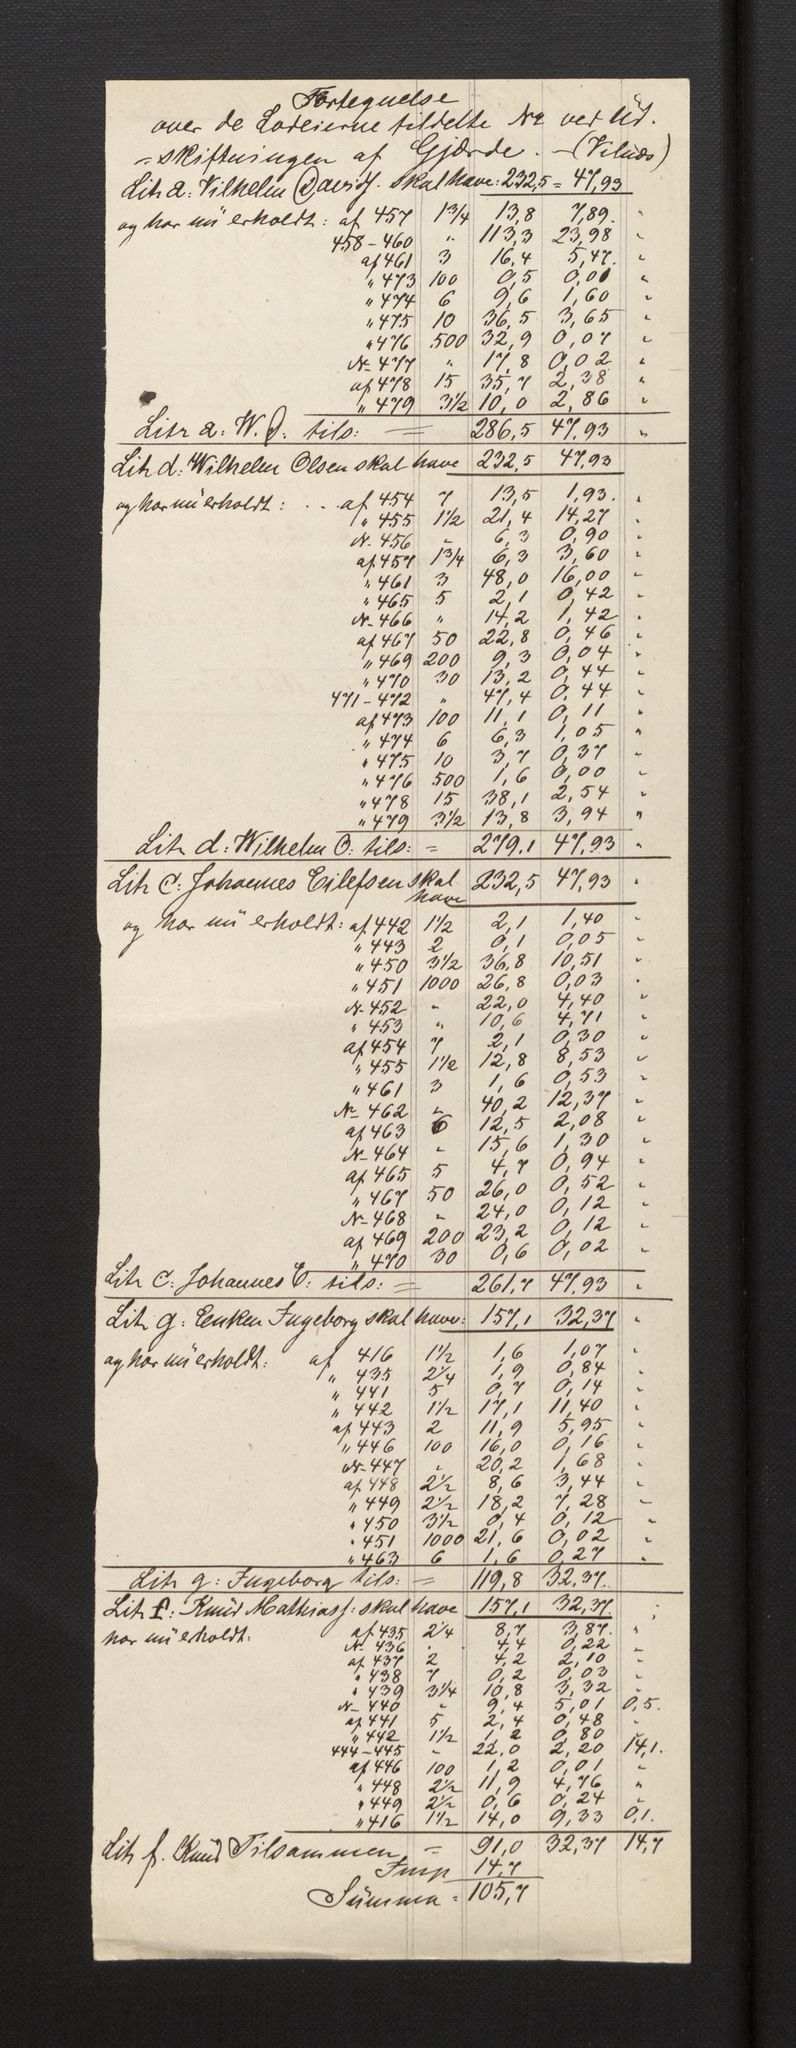 Fortegnelse
over de Lodeierne tildelte No ved Ud-
-skiftningen af Gjærde. - (Vilnæs)
Litr a: Vilhelm Davids. skal have: 232,5 = 47,93
og har nu erholdt: af 457 1 3/4 13,8 7,89 "
458-460 " 113,3 23,98 "
af 461 3 16,4 5,47 "
" 473 100 0,5 0,01 "
" 474 6 9,6 1,60 "
" 475 10 36,5 3,65 "
" 476 500 32,9 0,07 "
N- 477 " 17,8 0,02 "
af 478 15 35,7 2,38 "
" 479 3 1/2 10,0 2,86 "
Litr a: W. D. tils: = 286,5 47,93 "
Litr d: Wilhelm Olsen skal have 232,5 47,93
og har nu erholdt: . . af 454 7 13,5 1,93 "
" 455 1 1/2 21,4 14,27 "
N- 456 " 6,3 0,90 "
af 457 1 3/4 6,3 3,60 "
" 461 3 48,0 16,00 "
" 465 5 2,1 0,42 "
N- 466 " 14,2 1,42 "
af 467 50 22,8 0,46 "
" 469 200 9,3 0,04 "
" 470 30 13,2 0,44 "
471-472 " 47,4 0,44 "
af 473 100 11,1 0,11 "
" 474 6 6,3 1,05 "
" 475 10 3,7 0,37 "
" 476 500 1,6 0,00 "
" 478 15 38,1 2,54 "
" 479 3 1/2 13,8 3,94 "
Litr d: Wilhelm O: tils: = 279,1 47,93 "
Litr C: Johannes Eilefsen skal have 232,5 47,93 "
og har nu erholdt: af 442 1 1/2 2,1 1,40 "
" 443 2 0,1 0,05 "
" 450 3 1/2 36,8 10,51 "
" 451 1000 26,8 0,03 "
N- 452 " 22,0 4,40 "
" 453 " 10,6 4,71 "
af 454 7 2,1 0,30 "
" 455 1 1/2 12,8 8,53 "
" 461 3 1,6 0,53 "
N- 462 " 40,2 12,37 "
af 463 6 12,5 2,08 "
N- 464 " 15,6 1,30 "
af 465 5 4,7 0,94 "
" 467 50 26,0 0,52 "
N- 468 " 24,0 0,12 "
af 469 200 23,2 0,12 "
" 470 30 0,6 0,02 "
Litr C: Johannes E: tils: = 261,7 47,93 "
Litr g: Enken Ingeborg skal have: 157,1 32,37 "
og har nu erholdt: af 416 1 1/2 1,6 1,07 "
" 435 2 1/4 1,9 0,84 "
" 441 5 0,7 0,14 "
" 442 1 1/2 17,1 11,40 "
af 443 2 11,9 5,95 "
" 446 100 16,0 0,16 "
N- 447 " 20,2 1,68 "
af 448 2 1/2 8,6 3,44 "
" 449 2 1/2 18,2 7,28 "
" 450 3 1/2 0,4 0,12 "
" 451 1000 21,6 0,02 "
" 463 6 1,6 0,27 "
Litr g: Ingeborg tils: = 119,8 32,37.
Litr f: Knud Mathiass: skal have 157,1 32,37 "
har nu erholdt: af 435 2 1/4 8,7 3,87 "
N- 436 " 4,4 0,22 "
af 437 2 4,2 2,10 "
" 438 7 0,2 0,03 "
" 439 3 1/4 10,8 3,32 "
N- 440 " 9,4 5,01 0,5.
af 441 5 2,4 0,48 "
" 442 1 1/2 1,2 0,80 "
444-445 " 22,0 2,20 14,1.
af 446 100 1,2 0,01 "
" 448 2 1/2 11,9 4,76 "
" 449 2 1/2 0,6 0,24 "
" 416 1 1/2 14,0 9,33 0,1.
Litr f. Knud Tilsammen = 91,0 32,37 14,7
Imp 14,7
Summa = 105,7